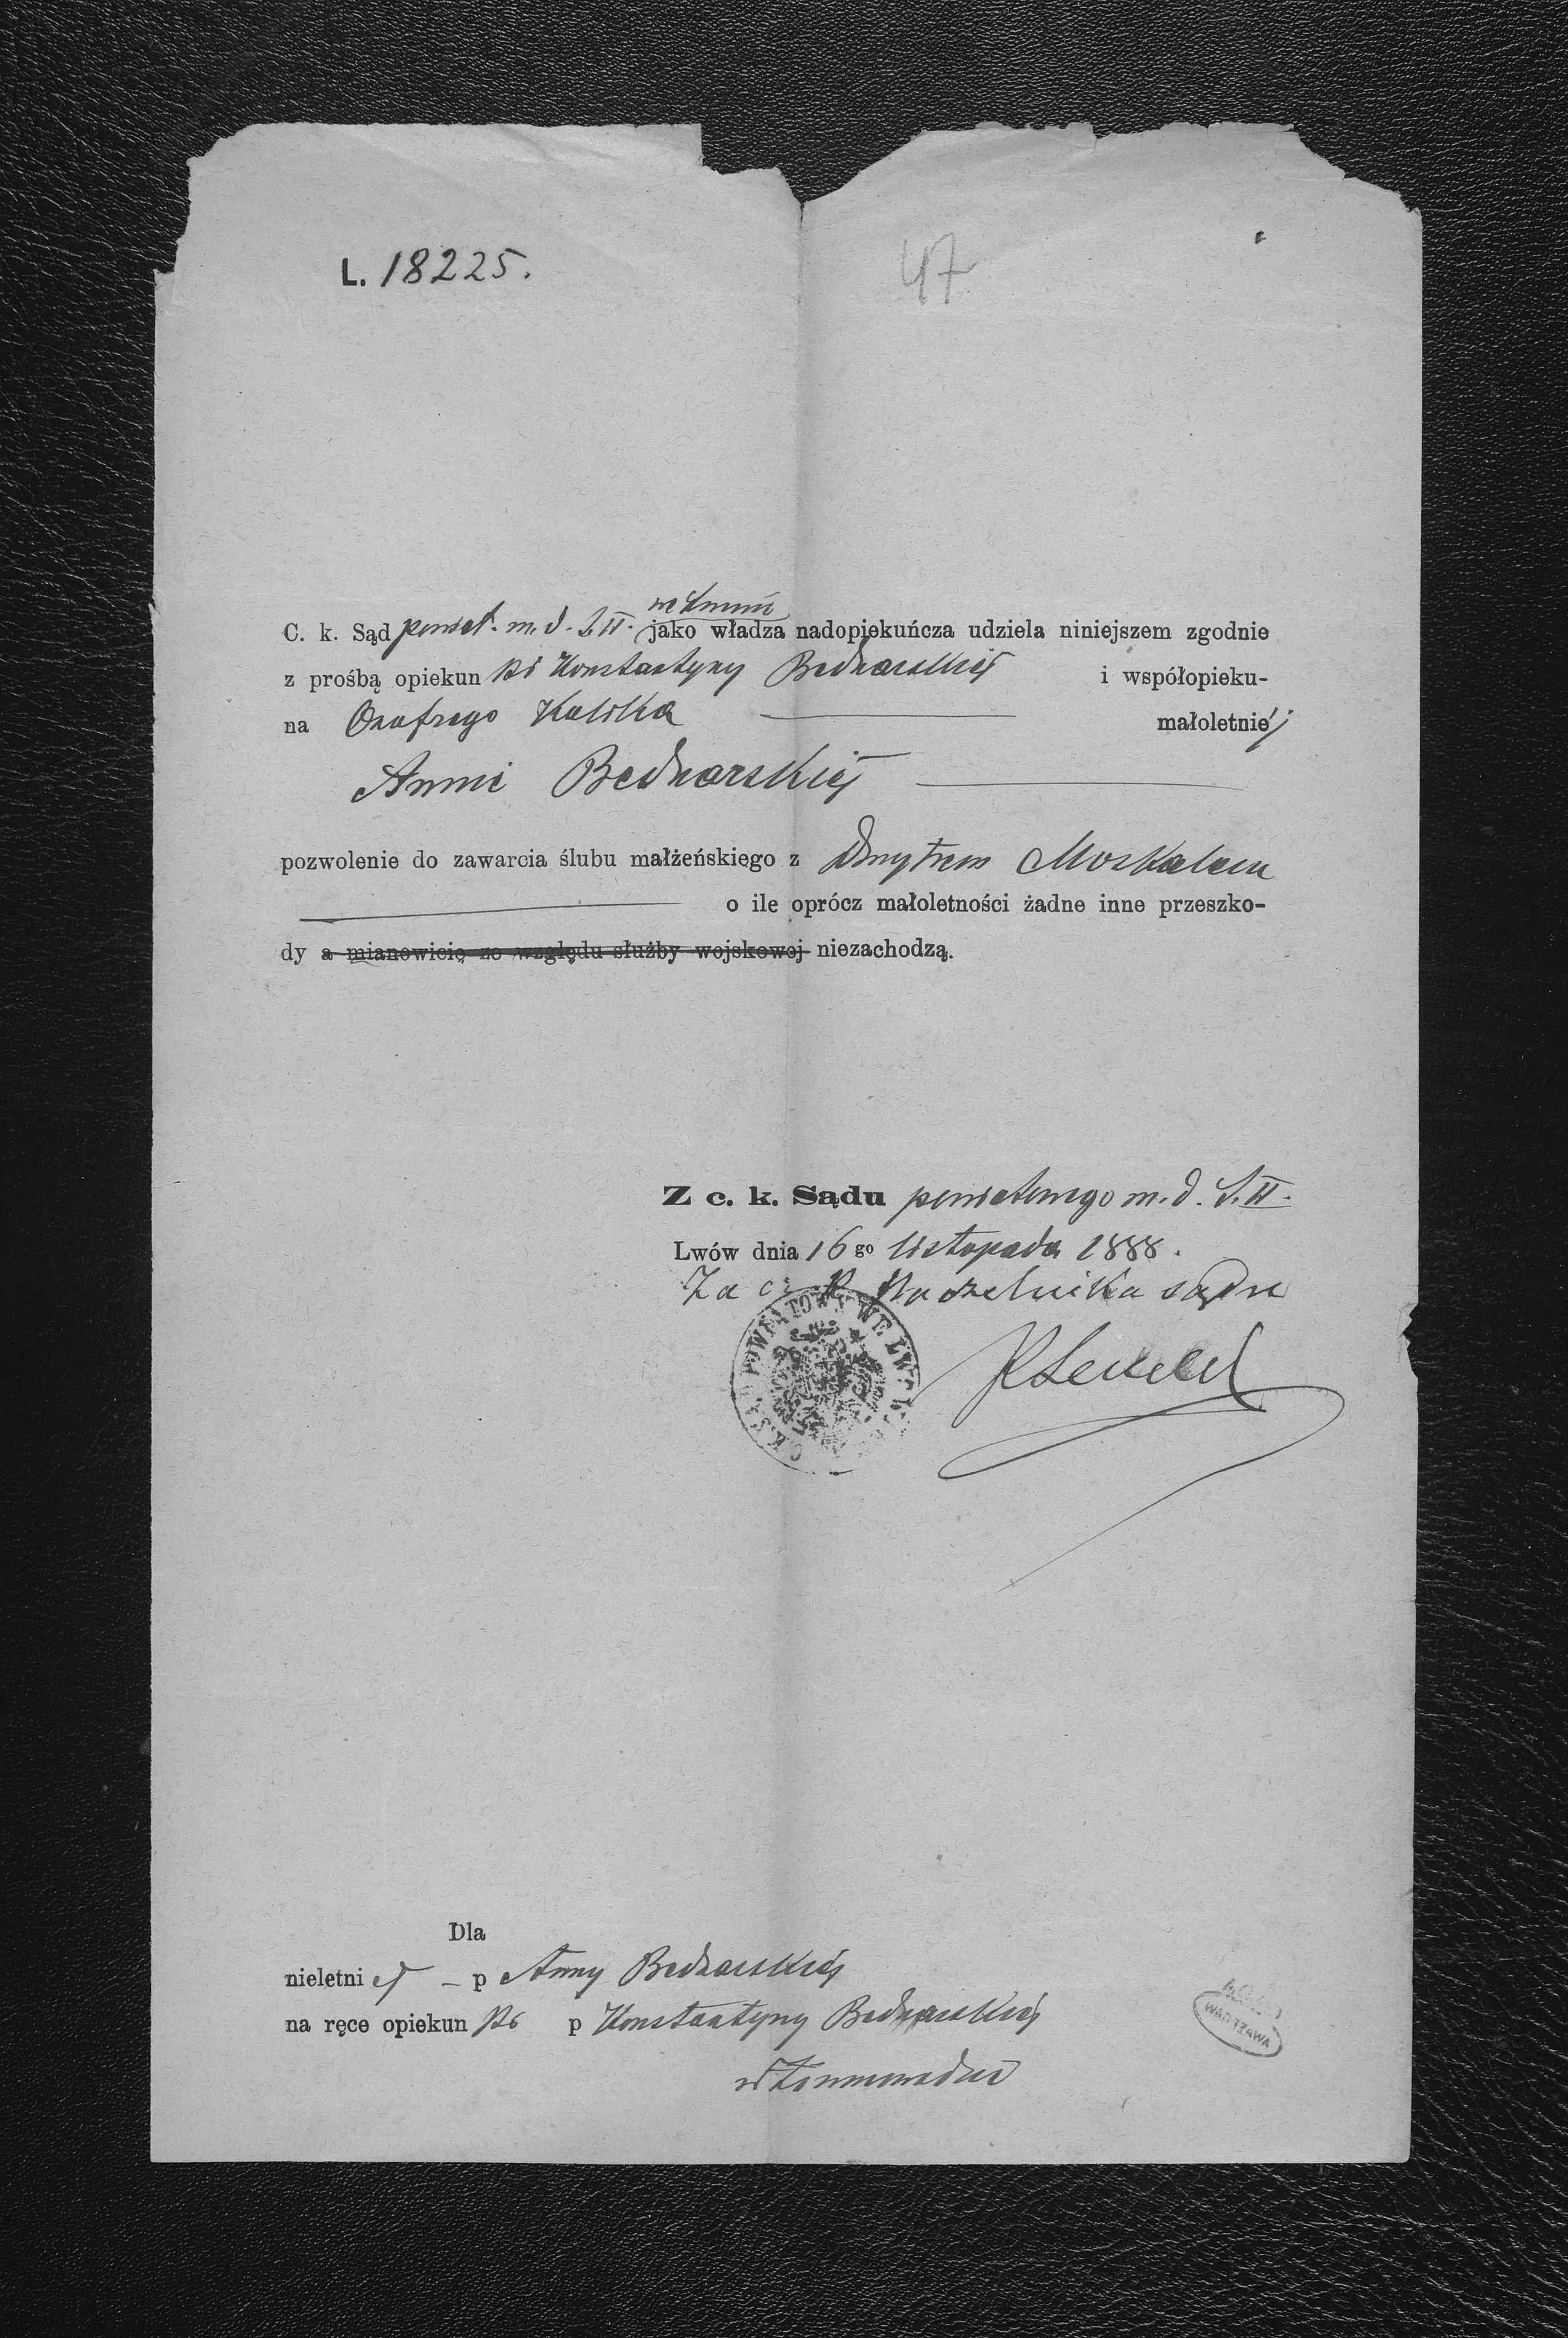 L. 18225.
47
we Lwowie
C. k. Sąd powiat. m. d. S. II. jako władza nadopiekuńcza udziela niniejszem zgodnie
z prośbą opiekunki Konstantyny Bednarskiéj i współopieku-
na Onufrego Kulika małoletniéj
Annie Bednarskiéj
pozwolenie do zawarcia ślubu małżeńskiego z Dmytrem Moskalem
o ile oprócz małoletności żadne inne przeszko-
dy a mianowicie ze względu służby wojskowej niezachodzą.
Z c. k. Sądu powiatowego m. d. S. II.
Lwów dnia 16go listopada 1888.
Za c. k. Naczelnika sądu
C. K. SĄD POWIATOWY WE LWOWIE
Dla
nieletniej – p Anny Bednarskiéj
na ręce opiekunki p Konstantyny Bednarskiéj
w
AGAD
WARSZAWA